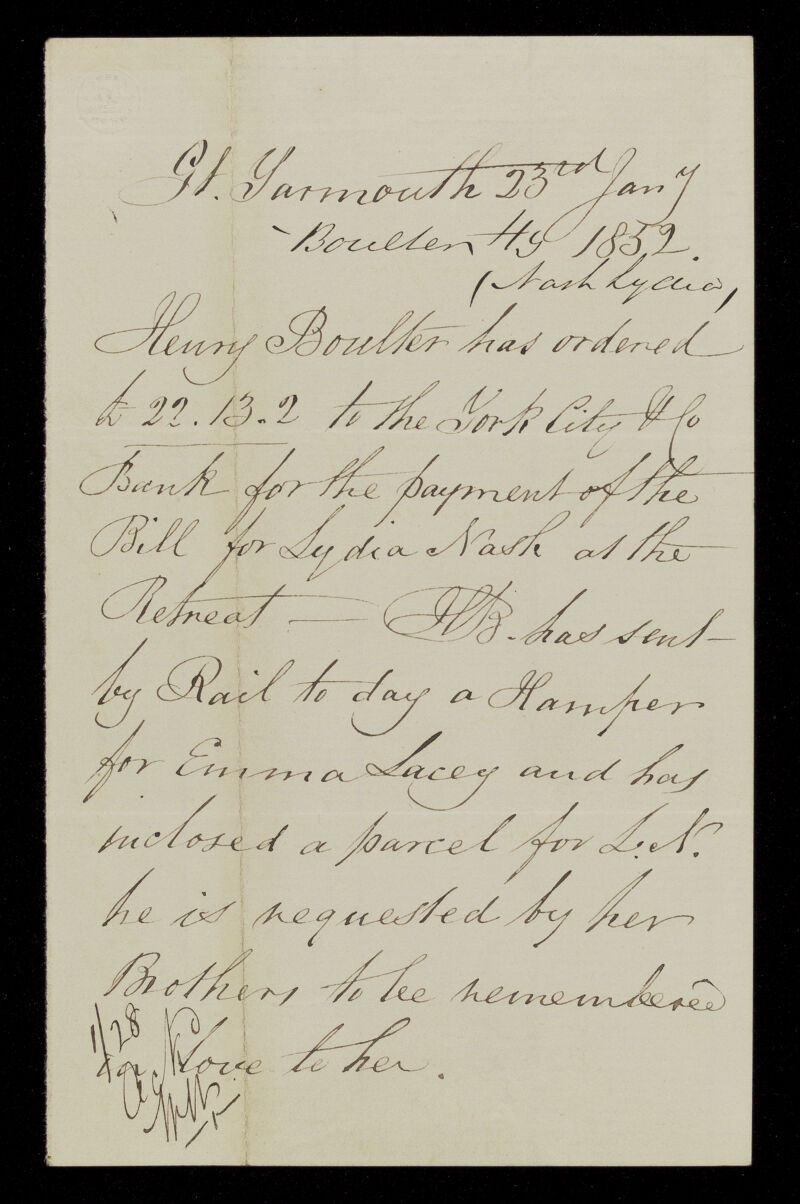 Gt. Yarmouth 23rd Jany
Boulter Hy 1852.
(Nash Lydia)
Henry Boulter has ordered
£ 22.13.2 to the York City & Co
Bank for the payment of the
Bill for Lydia Nash at the
Retreat — HB. has sent
by Rail to day a Hamper
for Emma Lacey and has
inclosed a parcel for L.N.
he is requested by her
Brothers to be remembered
in love to her.
1/28